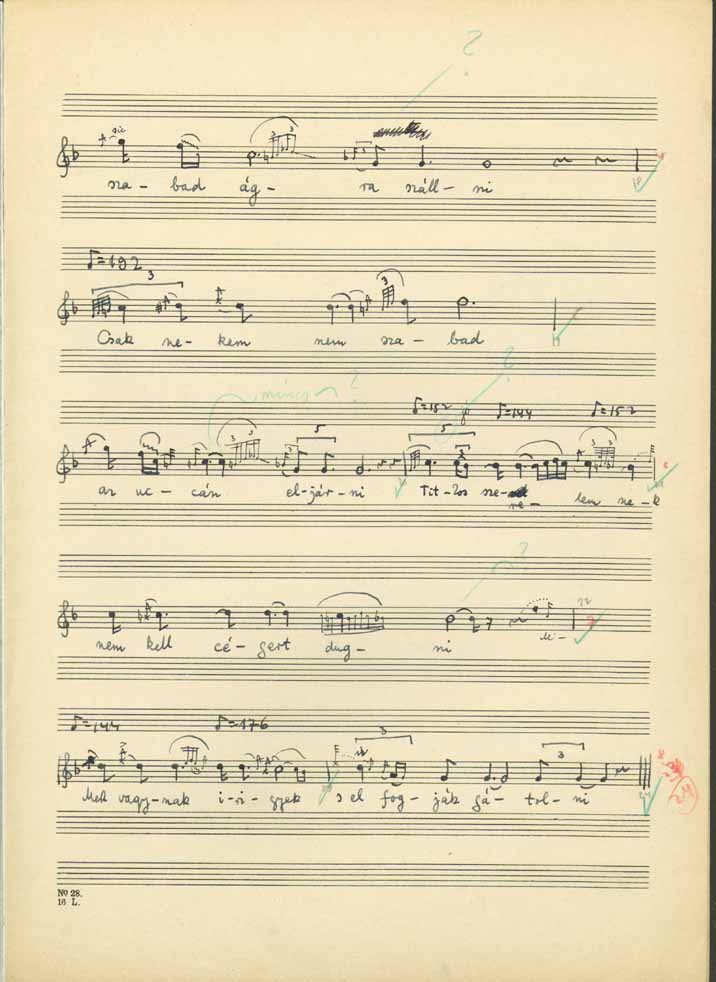 ?
sza- bad ág- ra száll- ni
♪=192
3
Csak ne- kem nem sza- bad
nincs ?
?
♪=152 jó ♪=144 ♪=152
az uc- cán el-jár-ni Tit-kos sze- re- lem ne-k
nem kell cé- gert dug- ni
♪=144 ♪=176
Mek vagy-nak i-ri- gyek s el fog- ják gá- tol- ni
24
No 28.
16 L.